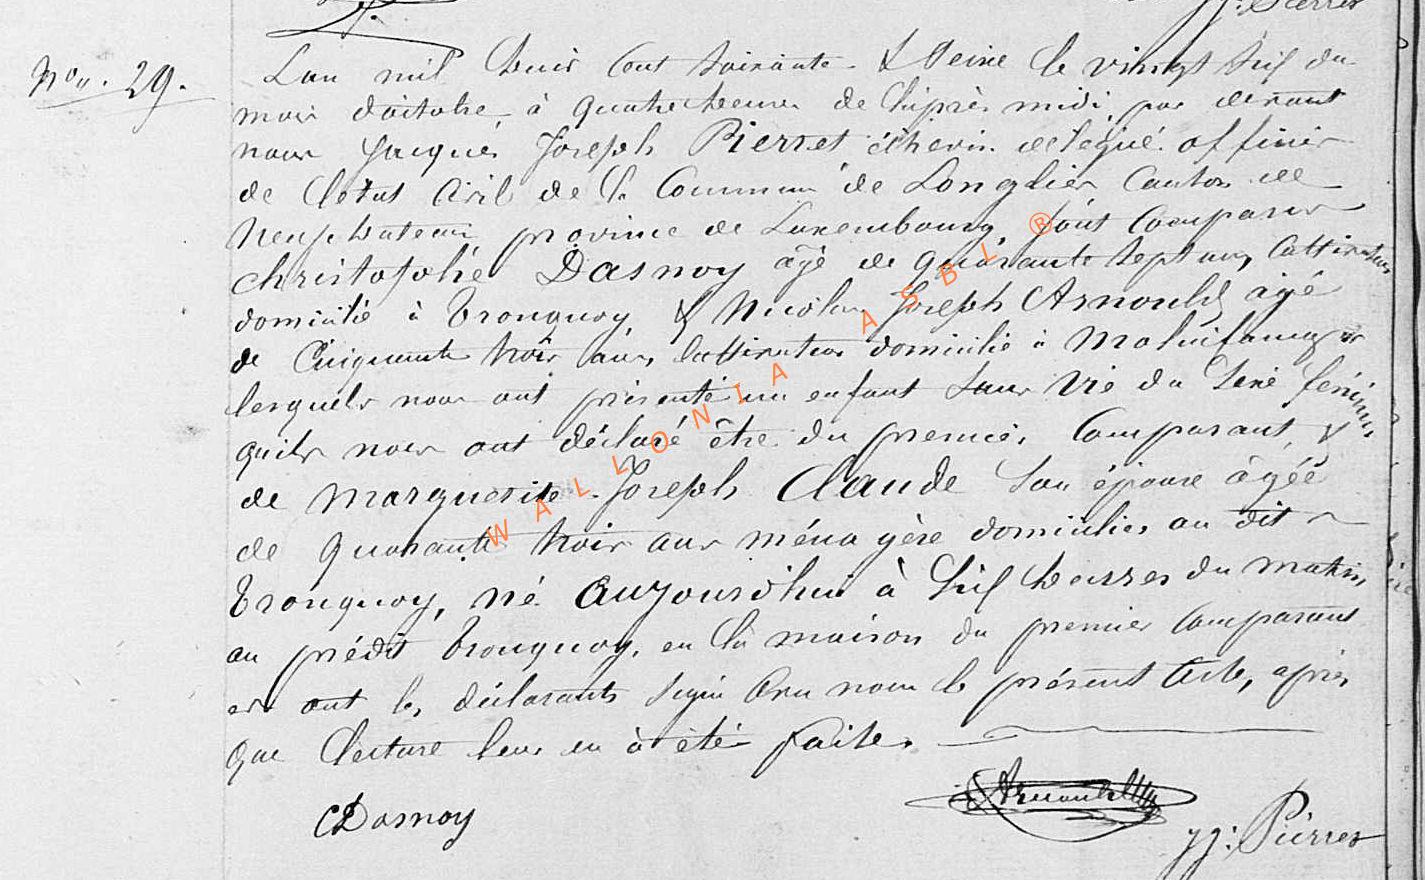 JJ: Pierret
Non. 29.
Lan mil huit cent soixante & seize le vingt huit du
mois d'octobre à quatre heures de l'après midi par devant
nous Jacques Joseph Pierret échevin délégué officier
de létat civil de la Commune de Longlier Canton de
Neufchateau province de Luxembourg sont Comparus
christophe Dasnoy âgé de quarante sept ans, Cultivateur
domicilié à Tronquoy, & Nicolas Joseph Arnould âgé
de Cinquante trois ans, Cultivateur domicilié à
lesquels nous ont présenté un enfant sans vie du sexe féminin
quils nous ont déclaré être du premier Comparant, &
de Marguerite Joseph Claude son épouse âgée
de quarante trois ans ménagère domiciliés au dit
Tronquoy, né aujourdhui à huit heures du matin
au prédit Tronquoy, en la maison du premier Comparant
et ont les déclarants signé avec nous le présent acte, après
que lecture leur en à été faite.
CDasnoy
Arnould
JJ: Pierret
WALLONIA ASBL ®